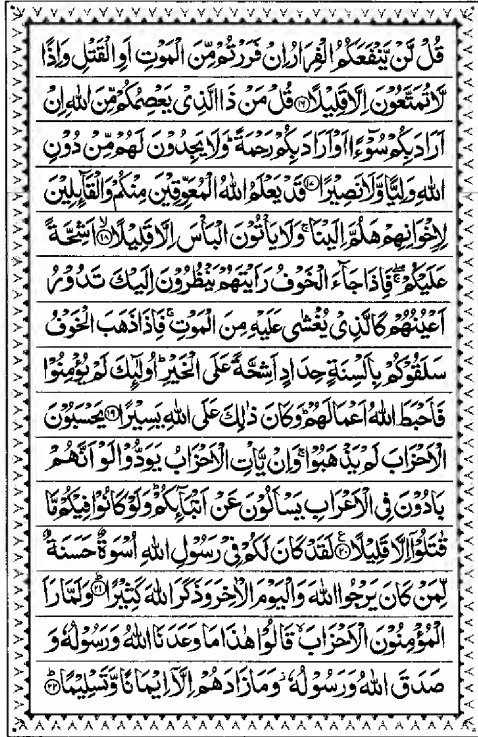 قُلْ لَّنْ يَّنْفَعَكُمُ الْفِرَارُ اِنْ فَرَرْتُمْ مِّنَ الْمَوْتِ اَوِ الْقَتْلِ وَاِذًا
لَّا تُمَتَّعُوْنَ اِلَّا قَلِيْلًا ﴿۱۶﴾ قُلْ مَنْ ذَا الَّذِىْ يَعْصِمُكُمْ مِّنَ اللهِ اِنْ
اَرَادَ بِكُمْ سُوْٓءًا اَوْ اَرَادَ بِكُمْ رَحْمَةً ؕ وَلَا يَجِدُوْنَ لَهُمْ مِّنْ دُوْنِ
اللهِ وَلِيًّا وَّلَا نَصِيْرًا ﴿۱۷﴾ قَدْ يَعْلَمُ اللهُ الْمُعَوِّقِيْنَ مِنْكُمْ وَالْقَآىِٕلِيْنَ
لِاِخْوَانِهِمْ هَلُمَّ اِلَيْنَا ۚ وَلَا يَاْتُوْنَ الْبَاْسَ اِلَّا قَلِيْلًا ﴿۱۸﴾ ۙ اَشِحَّةً
عَلَيْكُمْ ۖۚ فَاِذَا جَآءَ الْخَوْفُ رَاَيْتَهُمْ يَنْظُرُوْنَ اِلَيْكَ تَدُوْرُ
اَعْيُنُهُمْ كَالَّذِىْ يُغْشٰى عَلَيْهِ مِنَ الْمَوْتِ ۚ فَاِذَا ذَهَبَ الْخَوْفُ
سَلَقُوْكُمْ بِاَلْسِنَةٍ حِدَادٍ اَشِحَّةً عَلَى الْخَيْرِ ؕ اُولٰٓىِٕكَ لَمْ يُؤْمِنُوْا
فَاَحْبَطَ اللهُ اَعْمَالَهُمْ ؕ وَكَانَ ذٰلِكَ عَلَى اللهِ يَسِيْرًا ﴿۱۹﴾ يَحْسَبُوْنَ
الْاَحْزَابَ لَمْ يَذْهَبُوْا ۚ وَاِنْ يَّاْتِ الْاَحْزَابُ يَوَدُّوْا لَوْ اَنَّهُمْ
بَادُوْنَ فِى الْاَعْرَابِ يَسْاَلُوْنَ عَنْ اَنْۢبَآىِٕكُمْ ؕ وَلَوْ كَانُوْا فِيْكُمْ مَّا
قٰتَلُوْٓا اِلَّا قَلِيْلًا ﴿۲۰﴾ ۧ لَقَدْ كَانَ لَكُمْ فِىْ رَسُوْلِ اللهِ اُسْوَةٌ حَسَنَةٌ
لِّمَنْ كَانَ يَرْجُوا اللهَ وَالْيَوْمَ الْاٰخِرَ وَذَكَرَ اللهَ كَثِيْرًا ﴿۲۱﴾ ؕ وَلَمَّا رَاَ
الْمُؤْمِنُوْنَ الْاَحْزَابَ ۙ قَالُوْا هٰذَا مَا وَعَدَنَا اللهُ وَرَسُوْلُهٗ وَ
صَدَقَ اللهُ وَرَسُوْلُهٗ ۫ وَمَا زَادَهُمْ اِلَّاۤ اِيْمَانًا وَّتَسْلِيْمًا ﴿۲۲﴾ ؕ